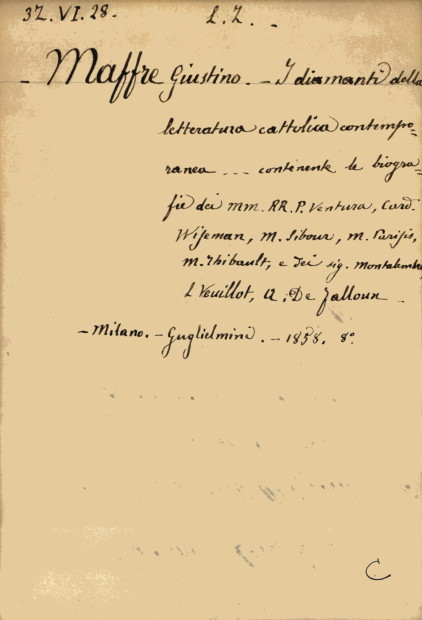 32. VI. 28. L. Z. -
- Maffre Giustino. - I diamanti della
letteratura cattolica contempo-
ranea ... contenente le biogra-
fie dei mm. RR. P. Ventura, Card.
Wiseman, M. Sibour, M. Parisis,
M. Thibault, e dei sig. Montalembe
L Veuillot, A. De Falloux -
- Milano. - Guglielmini. - 1858. 8°.
C